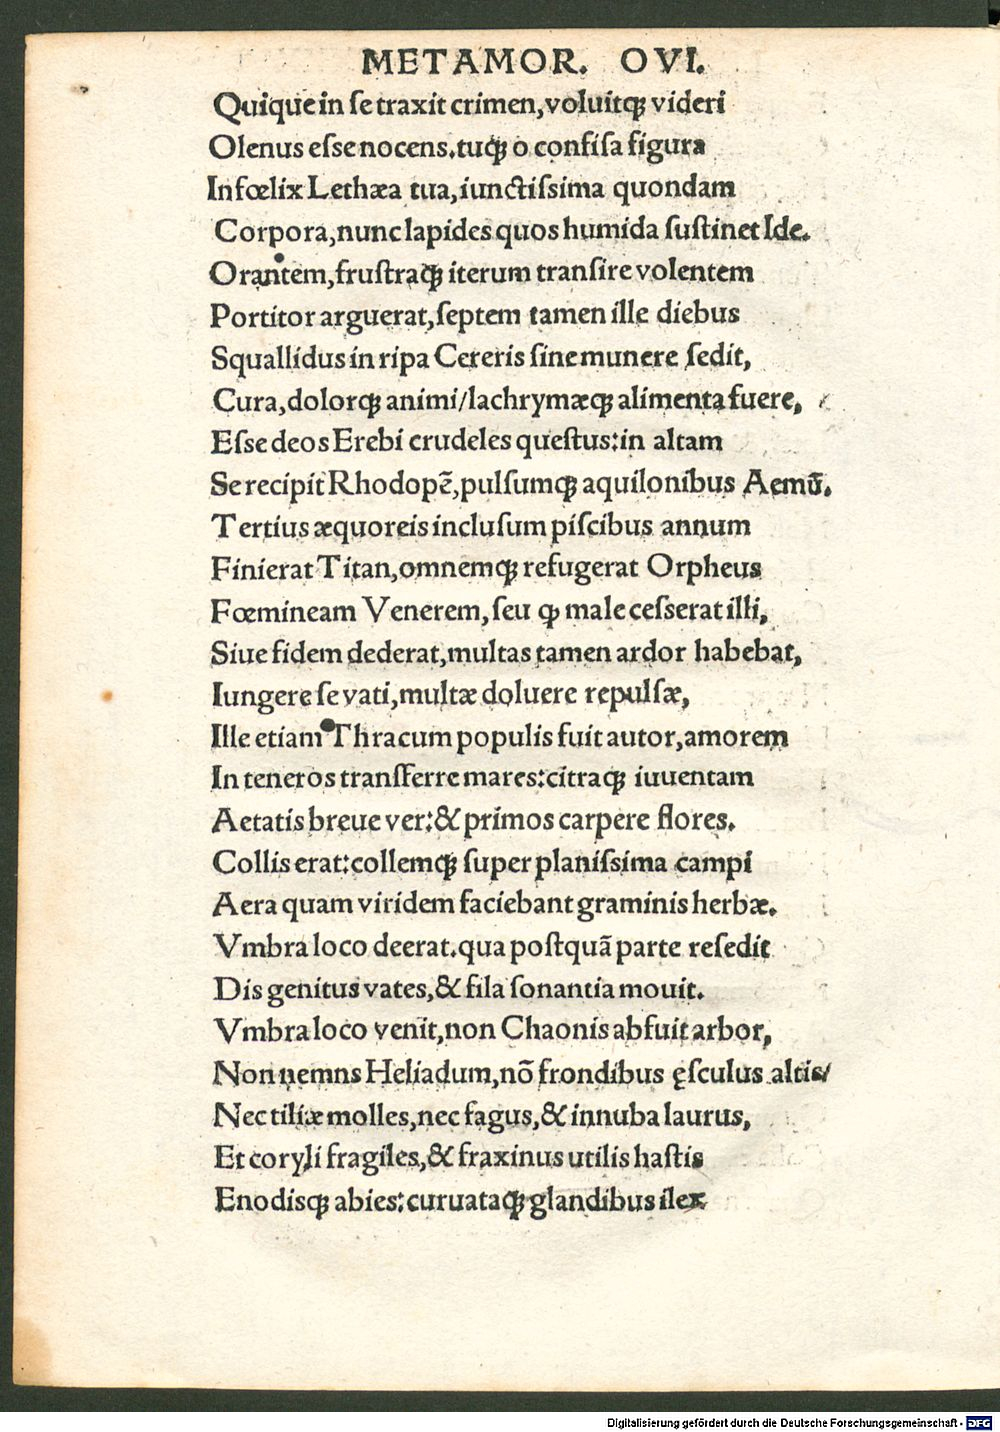 METAMOR. OVI.
Quique in ſe traxit crimen, voluitꝗ videri
Olenus eſſe nocens. tuꝗ o confiſa figura
Infœlix Lethæa tua, iunctiſſima quondam
Corpora, nunc lapides quos humida ſuſtinet Ide.
Orantem, fruſtraꝗ iterum tranſire volentem
Portitor arguerat, ſeptem tamen ille diebus
Squallidus in ripa Cereris ſine munere ſedit,
Cura, dolorꝗ animi/ lachrymæꝗ alimenta fuere,
Eſſe deos Erebi crudeles queſtus: in altam
Se recipit Rhodopē, pulſumꝗ aquilonibus Aemū.
Tertius æquoreis incluſum piſcibus annum
Finierat Titan, omnemꝗ refugerat Orpheus
Fœmineam Venerem, ſeu ꝙ male ceſſerat illi,
Siue fidem dederat, multas tamen ardor habebat,
Iungere ſe vati, multæ doluere repulſæ,
Ille etiam Thracum populis fuit autor, amorem
In teneros transferre mares: citraꝗ iuuentam
Aetatis breue ver: & primos carpere flores.
Collis erat: collemꝗ ſuper planiſſima campi
Aera quam viridem faciebant graminis herbæ.
Vmbra loco deerat. qua poſtquā parte reſedit
Dis genitus vates, & fila ſonantia mouit.
Vmbra loco venit, non Chaonis abfuit arbor,
Non nemns Heliadum, nō frondibus ęſculus altis/
Nec tiliæ molles, nec fagus, & innuba laurus,
Et coryli fragiles, & fraxinus utilis haſtis
Enodisꝗ abies: curuataꝗ glandibus ilex
Digitalisierung gefördert durch die Deutsche Forschungsgemeinschaft - DFG